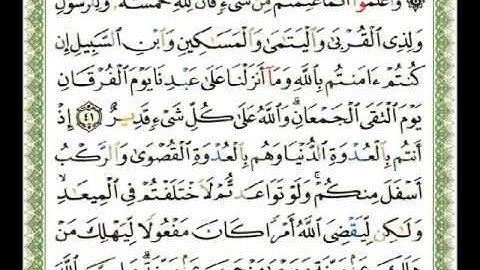 وَٱعْلَمُوٓا۟ أَنَّمَا غَنِمْتُم مِّن شَىْءٍ فَأَنَّ لِلَّهِ خُمُسَهُۥ وَلِلرَّسُولِ
وَلِذِى ٱلْقُرْبَىٰ وَٱلْيَتَـٰمَىٰ وَٱلْمَسَـٰكِينِ وَٱبْنِ ٱلسَّبِيلِ إِن
كُنتُمْ ءَامَنتُم بِٱللَّهِ وَمَآ أَنزَلْنَا عَلَىٰ عَبْدِنَا يَوْمَ ٱلْفُرْقَانِ
يَوْمَ ٱلْتَقَى ٱلْجَمْعَانِ ۗ وَٱللَّهُ عَلَىٰ كُلِّ شَىْءٍ قَدِيرٌ ٤١ إِذْ
أَنتُم بِٱلْعُدْوَةِ ٱلدُّنْيَا وَهُم بِٱلْعُدْوَةِ ٱلْقُصْوَىٰ وَٱلرَّكْبُ
أَسْفَلَ مِنكُمْ ۚ وَلَوْ تَوَاعَدتُّمْ لَٱخْتَلَفْتُمْ فِى ٱلْمِيعَـٰدِ ۙ
وَلَـٰكِن لِّيَقْضِىَ ٱللَّهُ أَمْرًا كَانَ مَفْعُولًا لِّيَهْلِكَ مَنْ